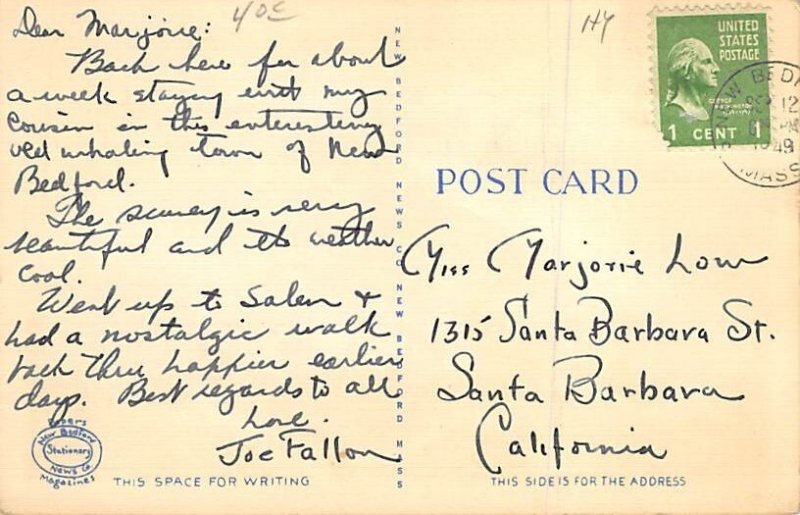 Dear Marjorie:
40¢
Back here for about
a week staying with my
cousin in this interesting
old whaling town of New
Bedford.
The scenery is very
beautiful and the weather
cool.
Went up to Salem +
had a nostalgic walk
back thru happier earlier
days. Best regards to all
Love.
Joe Fallon
Papers
New Bedford
Stationery
News Co
Magazines
THIS SPACE FOR WRITING
NEW BEDFORD NEWS CO NEW BEDFORD MASS
UNITED
STATES
POSTAGE
1 CENT 1
NEW BEDF
12
PM
1949
MASS
POST CARD
Miss Marjorie Low
1315 Santa Barbara St.
Santa Barbara
California
THIS SIDE IS FOR THE ADDRESS